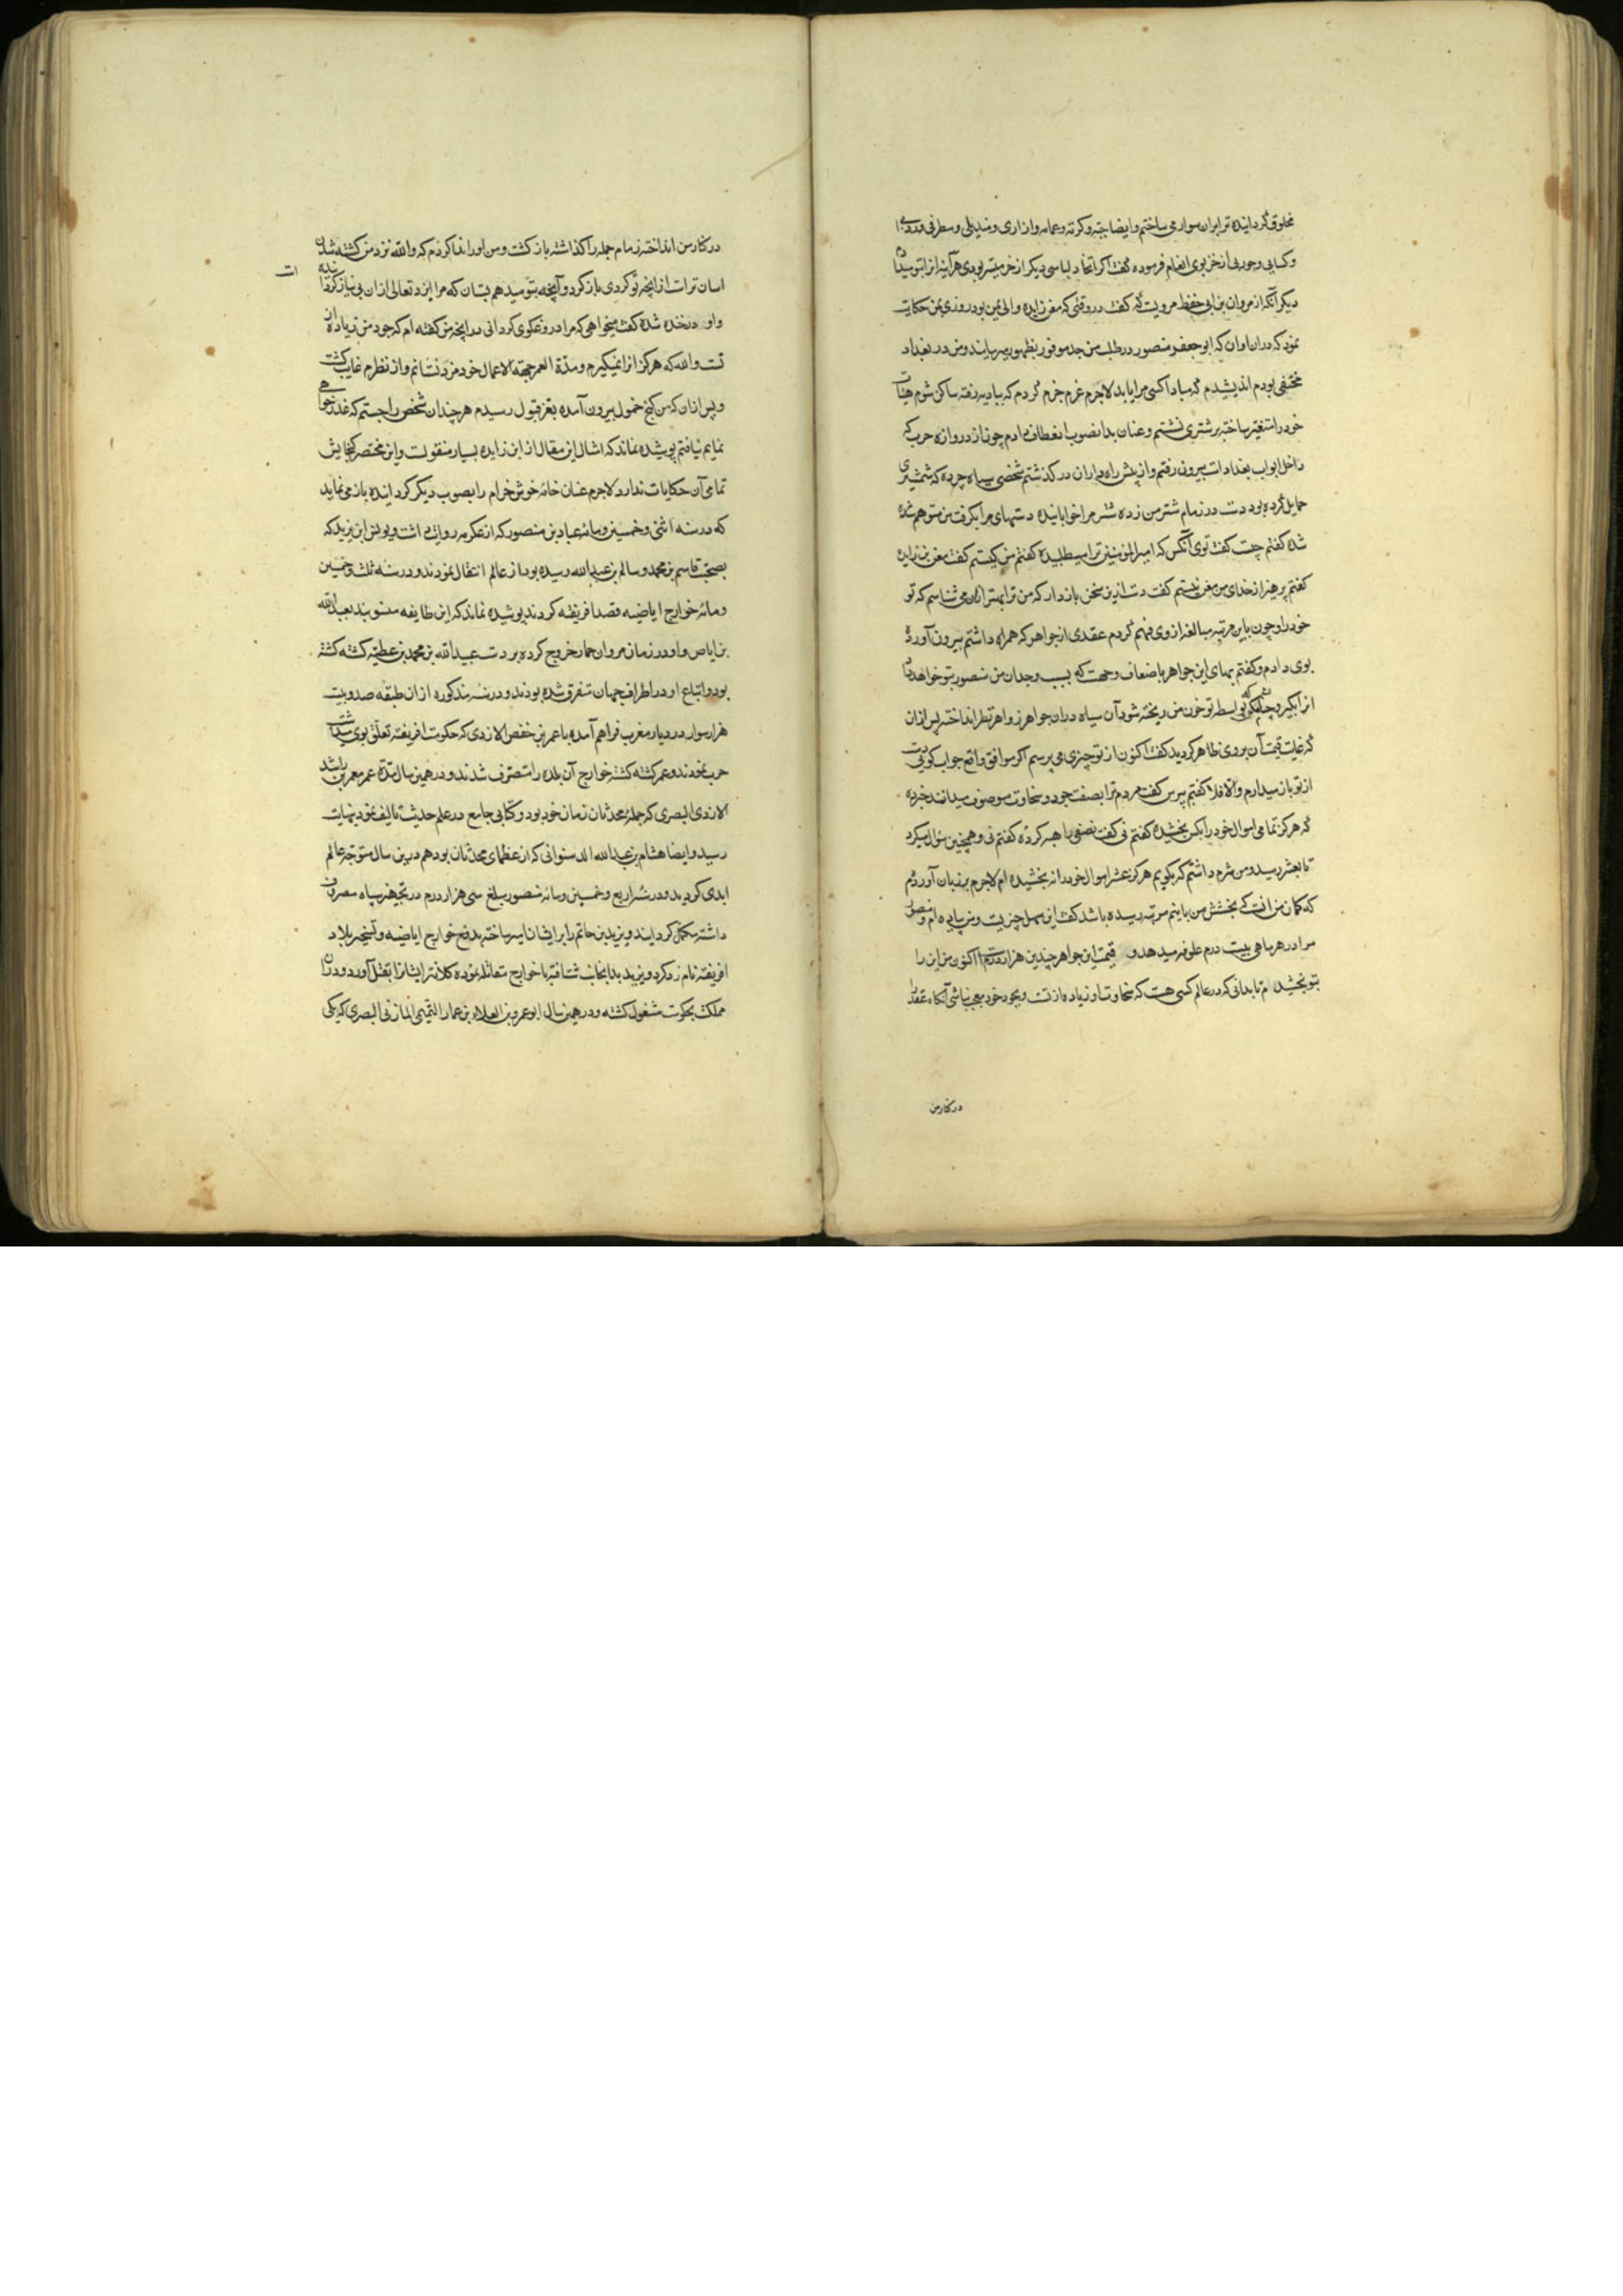 مخلوق گردانیده ترا بران سوار می ساختم و ایضا جبّه و کرته و عمامه و ازاری و مندیلی و مطرفی و ردایی
و کسایی و جوربی از خز بوی انعام فرموده گفت اگر اتخاذ لباسی دیگر از خز میسّر بودی هرآینه انرا بتو میدادم
دیگر آنکه از مروان بن ابی حفظه مرویست که گفت در وقتی که معن زایده والی یمن بود روزی بمن حکایت
نمود که دران اوان که ابو جعفر منصور در طلب من جد موفور بظهور میرسانید و من در بغداد
مختفی بودم اندیشیدم که مبادا کسی مرا یابد لاجرم عزم جزم کردم که ببادیه رفته ساکن شوم هیات
خود را متغیّر ساخته بر شتری نشستم و عنان بدانصوب انعطاف دادم چون از دروازه حرب که
داخل ابواب بغداد است بیرون رفتم و از پیش راه داران در گذشتم شخصی سیاه چرده که شمشیری
حمایل کرده بود دست در زمام شتر من زده شتر مرا خوابانیده دستهای مرا بگرفت من متوهم شده
شده گفتم چیست گفت توی آنکس که امیرالمؤمنین ترا میطلبیده گفتم من کیستم گفت معن بن زایده
گفتم پرهیز از خدای من معن نیستم گفت دست ازین سخن بازدار که من ترا بهتر ازان می شناسم که تو
خود را و چون باین مرتبه مبالغه از وی فهم کردم عقدی از جواهر که همراه داشتم بیرون آورده
بوی دادم و گفتم بهای این جواهر باضعاف وجهیست که بسبب وجدان من منصور بتو خواهد داد
انرا بگیر و چنان مکن که بواسطه تو خون من ریخته شود آن سیاه دران جواهر زواهر نظر انداخته پس ازان
که غایت قیمت آن بروی ظاهر گردید گفت اکنون از تو چیزی می پرسم اگر موافق واقع جواب گویی دست
از تو باز میدارم و الا فلا گفتم بپرس گفت مردم ترا بصفت جود و سخاوت موصوف میدانند خبر ده
که هرگز تمامی اموال خود را بکس بخشیدهٔ گفتم نی گفت نصفی را هبه کردهٔ گفتم نی و همچنین سؤال میکرد
تا بعشر رسید و من شرم داشتم که بگویم هرگز عشر اموال خود را نه بخشیده ام لاجرم بر زبان آوردم
که گمان من انست که بخشش من باینم مرتبه رسیده باشد گفت این سهل چیزیست و من پیاده ام و منصور
مرا در هر ماهی بیست درم علوفه میدهد و قیمت این جواهر چندین هزار درم است اکنون من این را
بتو بخشیده ام تا بدانی که در عالم کسی هست که سخاوت او زیاده از تست و بجود خود معجب نباشی آنگاه عقد را
در کنار من
در کنار من انداخته زمام جمل را گذاشته باز گشت و من او را ندا کردم که والله نزد من کشته شدن
اسان تر است از انچه تو کردی باز گرد و آنچه بتو میدهم بستان که مرا ایزد تعالی ازان بی نیاز گردانیده
است
و او در خنده شده گفت میخواهی که مرا دروغگوی گردانی در انچه من گفته ام که جود من زیاده از
تست والله که هرگز انرا نمیگیرم و مدّة العمر بجهته الاعمال خود مزد نستانم و از نظرم غایب گشت
و پس ازان که من کنج خمول بیرون آمده بعزّ قبول رسیدم هرچند ان شخص را جستم که عذر خواهی
نمایم نیافتم پوشیده نماند که امثال این مقال از ابن زایده بسیار منقولست و این مختصر گنجایش
تمامی آن حکایات ندارد لاجرم عنان خامهٔ خوش خرام را بصوب دیگر گردانیده باز می نماید
که در سنه اثنی و خمسین و مائه عباد بن منصور که از عکرمه روایت داشت و یونس ابن یزید که
بصحبت قاسم بن محمد و سالم بن عبدالله رسیده بود از عالم انتقال نمودند و در سنه ثلث و خمسین
و مائه خوارج اباضیه قصد افریقه کردند پوشیده نماند که این طایفه منسوبند بعبدالله
بن اباض و او در زمان مروان حمار خروج کرده بر دست عبدالله بن محمد بن عطیّه کشته گشته
بود و اتباع او در اطراف جهان متفرق شده بودند و در سنه مذکوره از ان طبقه صد و بیست
هزار سوار در دیار مغرب فراهم آمده با عمر بن حفص الازدی که حکومت افریقه تعلّق بوی میداشت
حرب نمودند و عمر کشته گشته خوارج آن بلده را متصرّف شدند و درهمین سال مدّة عمر معمر بن راشد
الازدی البصری که جملهٔ محدثان زمان خود بود و کتابی جامع در علم حدیث تالیف نمود بنهایت
رسید و ایضا هشام بن عبدالله الدستوانی که از عظمای محدثان بود هم درین سال متوجّه عالم
ابدی گردید و در سنهٔ اربع و خمسین و مائه منصور مبلغ سی هزار درم در تجهیز سپاه مصروف
داشته مکمّل گردانید و یزید بن حاتم را بر ایشان امیر ساخته بدفع خوارج اباضیه و تسخیر بلاد
افریقه نامزد کرد و یزید بدانجانب شتافته با خوارج مقاتله نموده کلانتر ایشانرا بقتل آورد و در ان
مملکت بحکومت مشغول گشته و درهمین سال ابو عمرو بن العلاء بن عمار التمیمی المازنی البصری که یکی